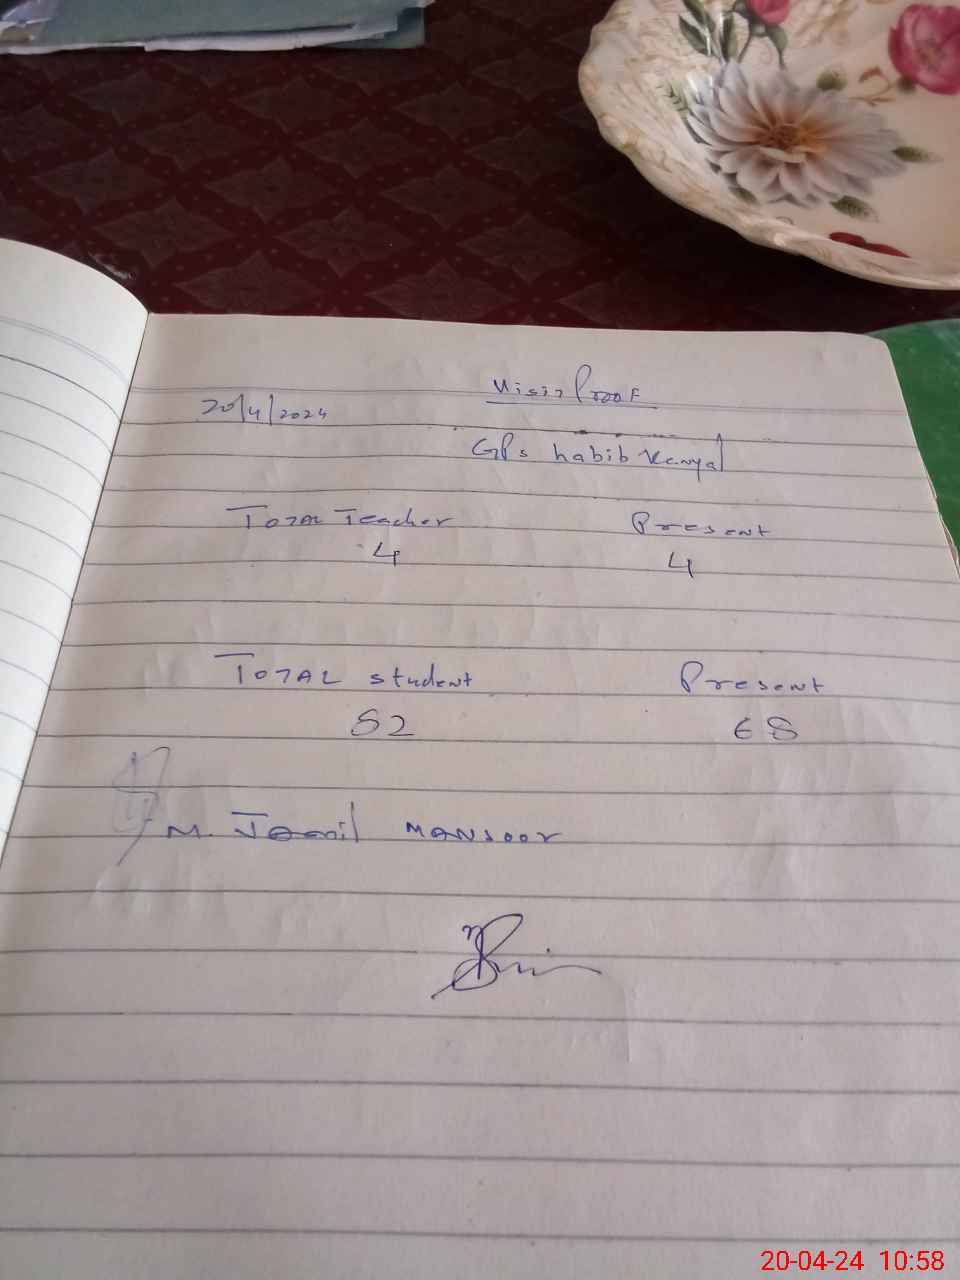 Visit Proof
20/4/2024
GPs habib Kenyal
Total Teacher Present
4 4
Total student Present
82 68
M. Jamil Mansoor
20-04-24 10:58